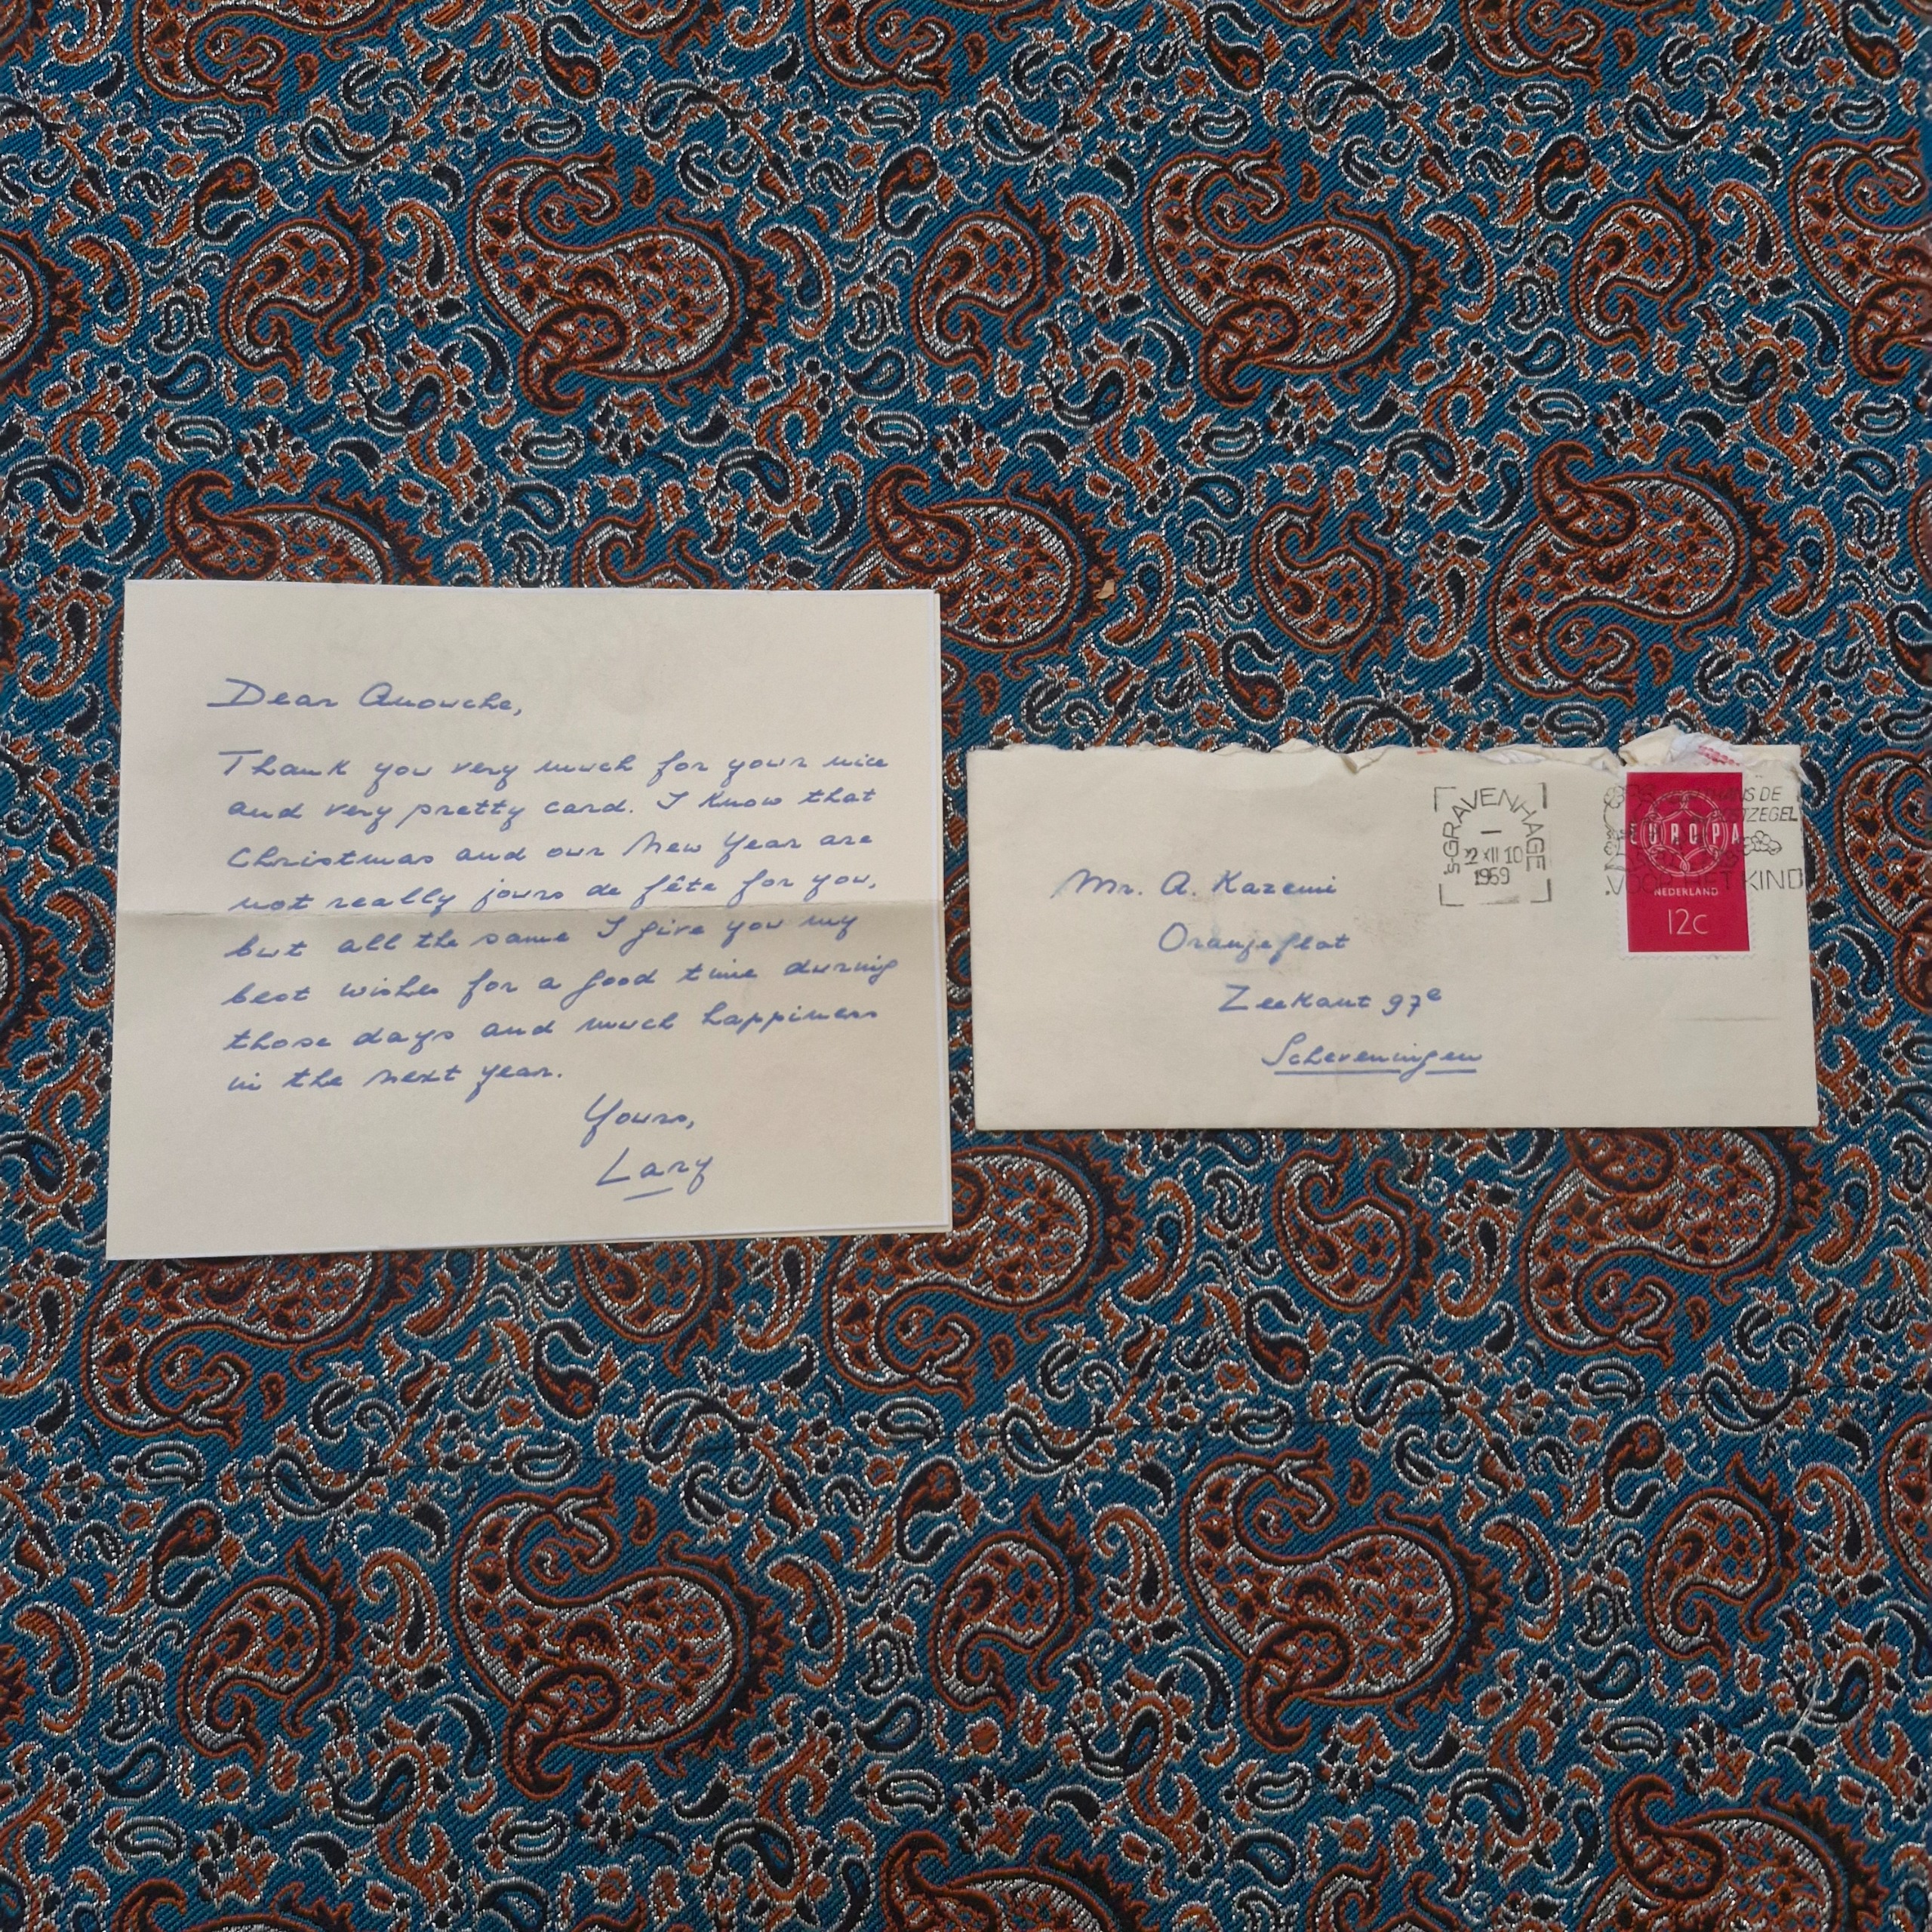 Dear Anouche,
Thank you very much for your nice
and very pretty card. I know that
Christmas and our New Year are
not really jours de fête for you,
but all the same I give you my
best wishes for a good time during
those days and much happiness
in the next year.
Yours,
Lary
'S-GRAVENHAGE
XII 10
1959
DE
ZEGEL
VOOR HET KIND
EUROPA
NEDERLAND
12c
Mr. A. Kazemi
Oranjeflat
Zeekant 97e
Scheveningen